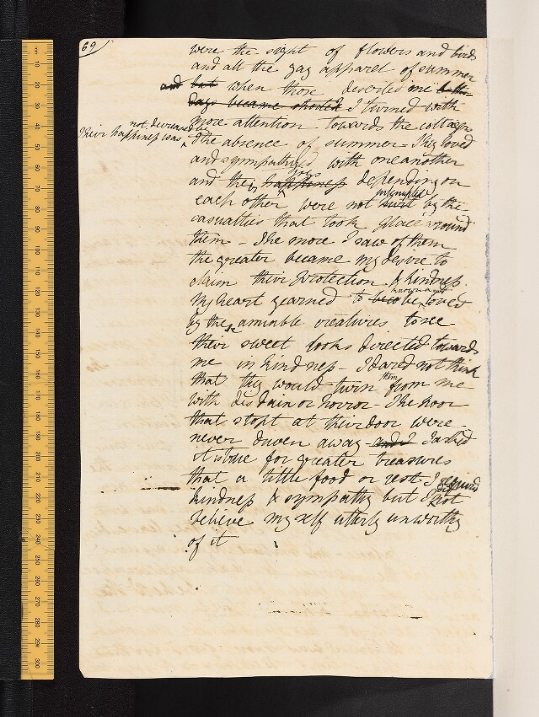 69
were the sight of flowers and birds
and all the gay apparel of summer
and but when those deserted me
days became I turned with
more attention towards the cottagers
Their happiness was not decreased by
the absence of summer – They loved
and sympathized with one another
and the joys happiness depending on
each other were not interrupted by the
casualties that took place around
them – The more I saw of them
the greater became my desire to
claim their protection & kindness.
My heart yearned to be known and be loved
by the amiable creatures to see
their sweet looks directed towards
me in kindness – I dared not think
that they would turn them from me
with disdain or horror – The poor
that stopt at their door were
never driven away I asked
it is true for greater treasures
that a little food or rest I required
kindness & sympathy but I did not
believe myself utterly unworthy
of it